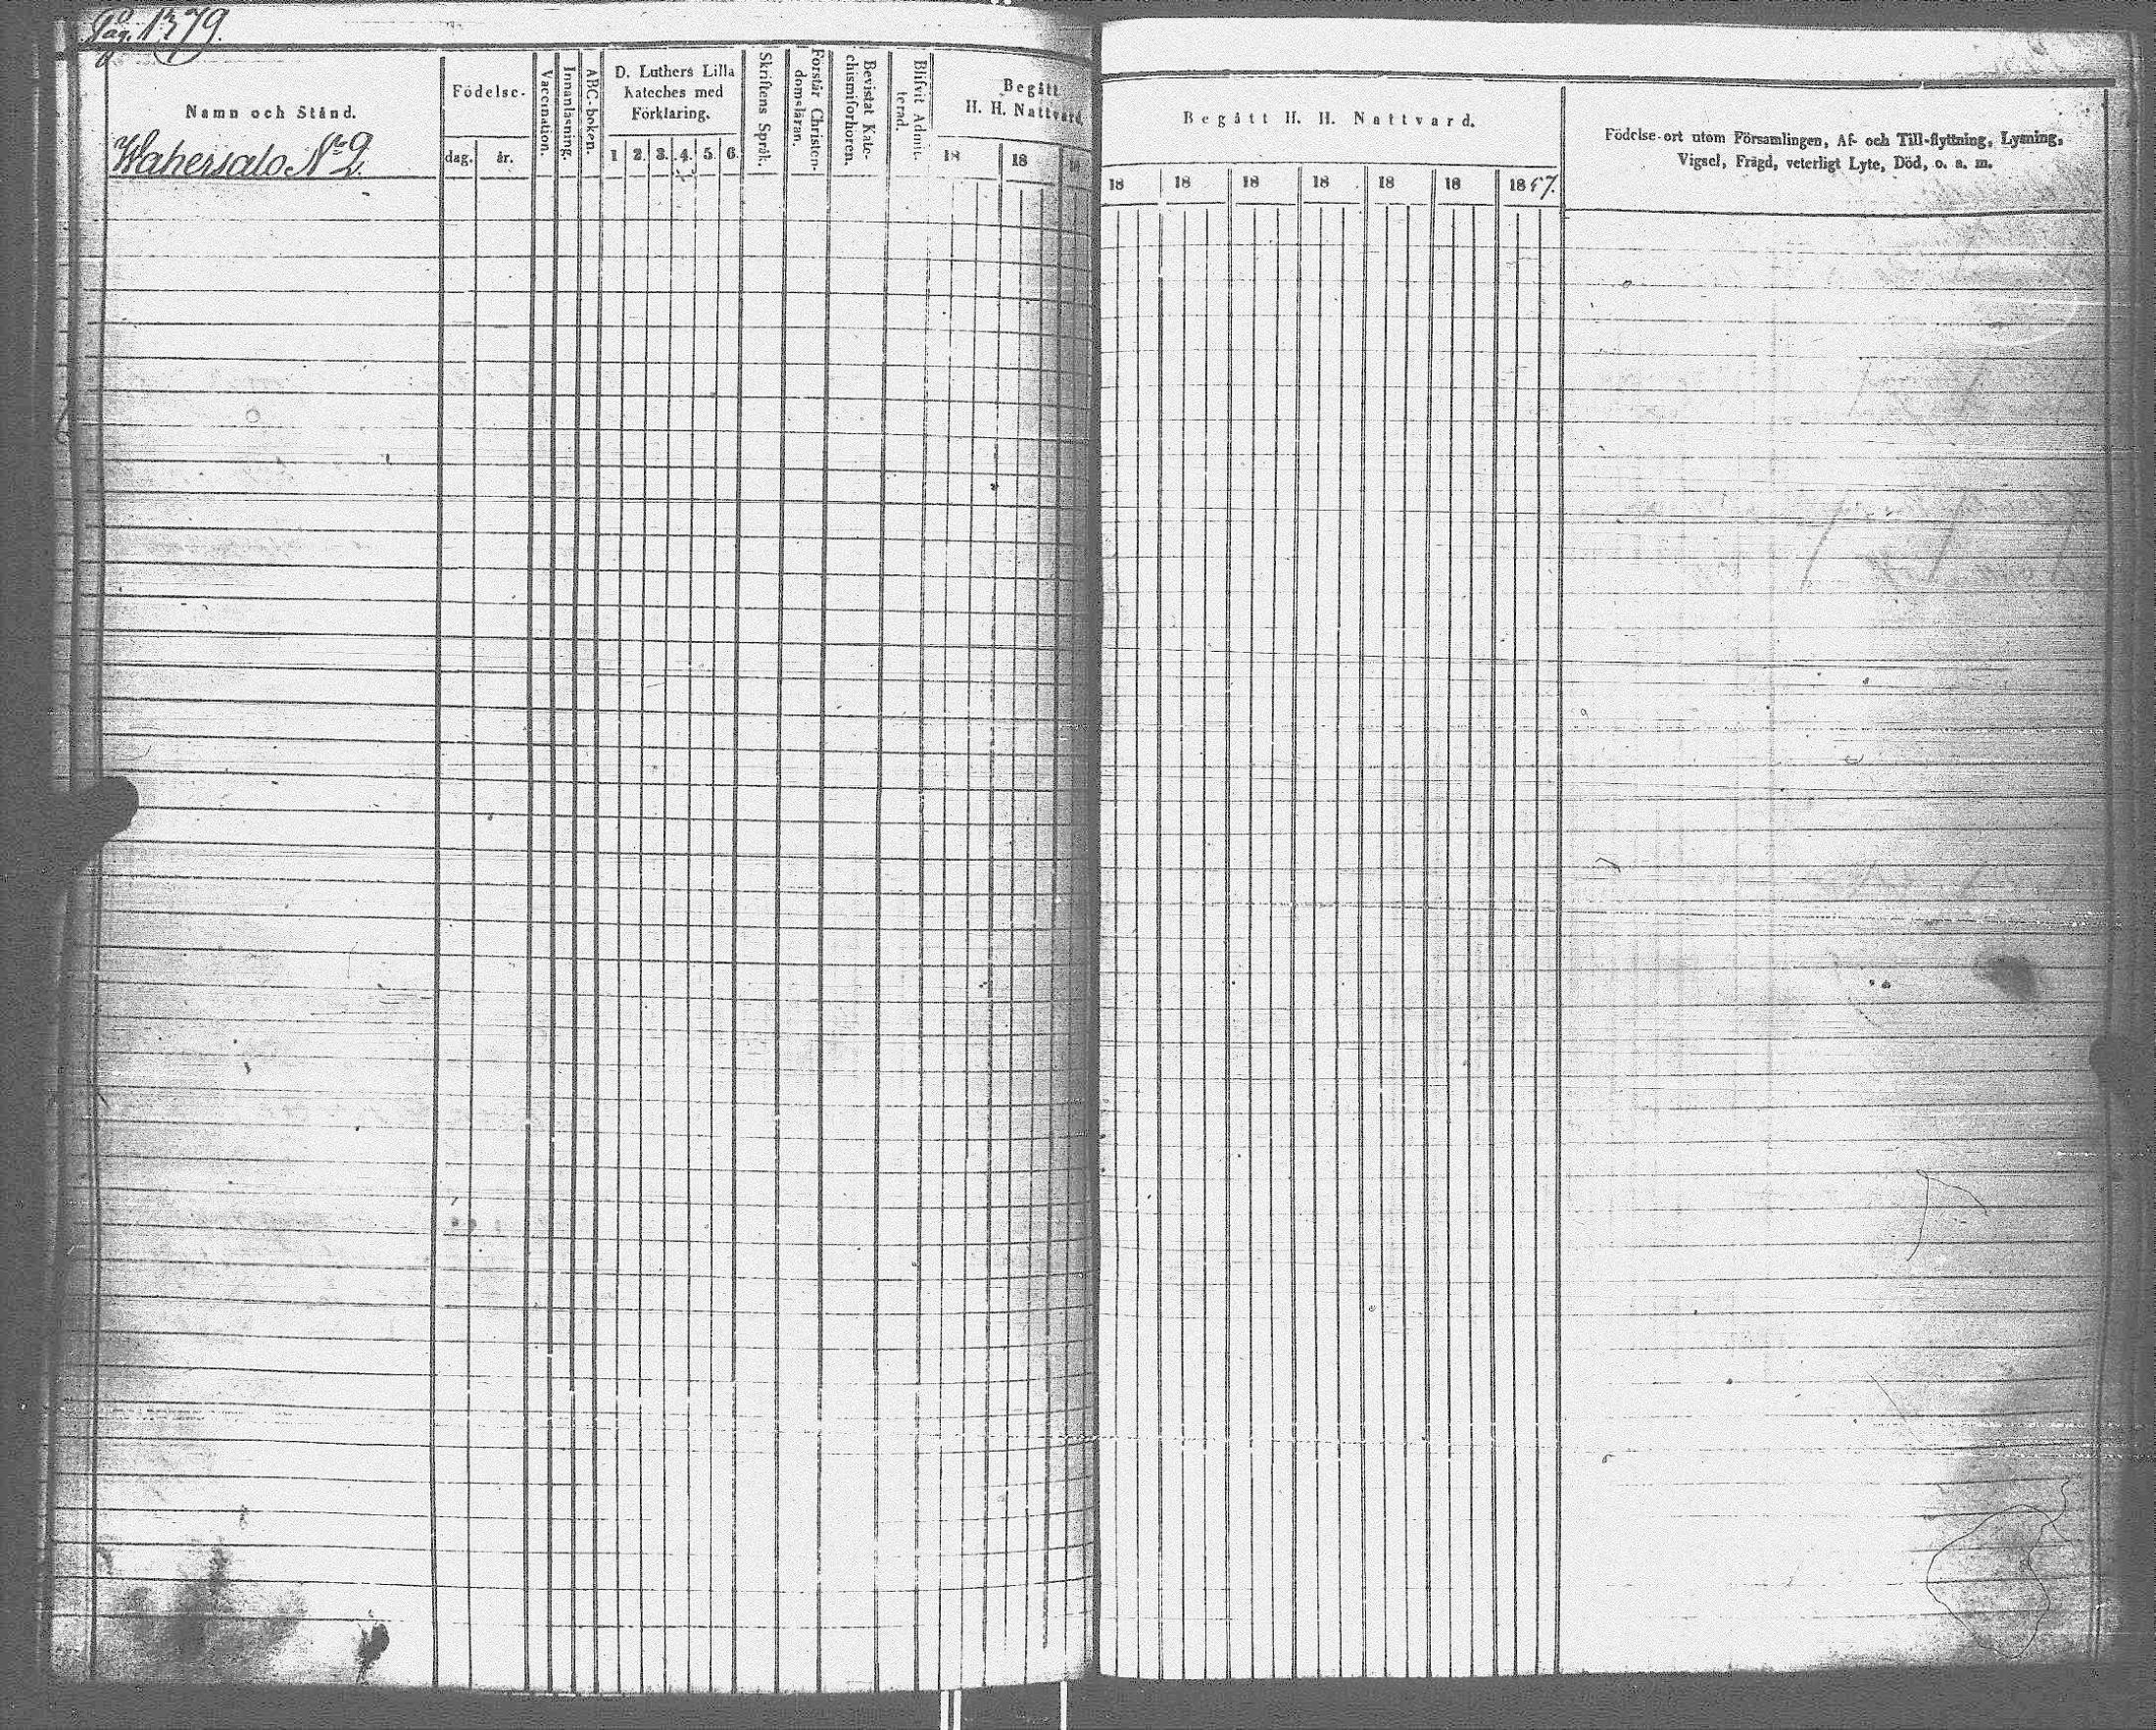 Pag. 1379.
Namn och Stånd.
Wahersalo No 2.
Födelse-
dag.
år.
Vaccination.
Innanläsning.
ABC-boken.
D. Luthers Lilla
Kateches med
Förklaring.
1 2. 3. 4. 5. 6.
Skriftens Språk.
Förstår Christen-
domsläran.
Bevistat Kate-
chismiförhören.
Blifvit Admit-
terad.
Begått
H. H. Nattvard.
18 18 18
Begått H. H. Nattvard.
18 18 18 18 18 18 1857.
Födelse-ort utom Församlingen, Af- och Till-flyttning, Lysning,
Vigsel, Frägd, veterligt Lyte, Död, o. s. m.